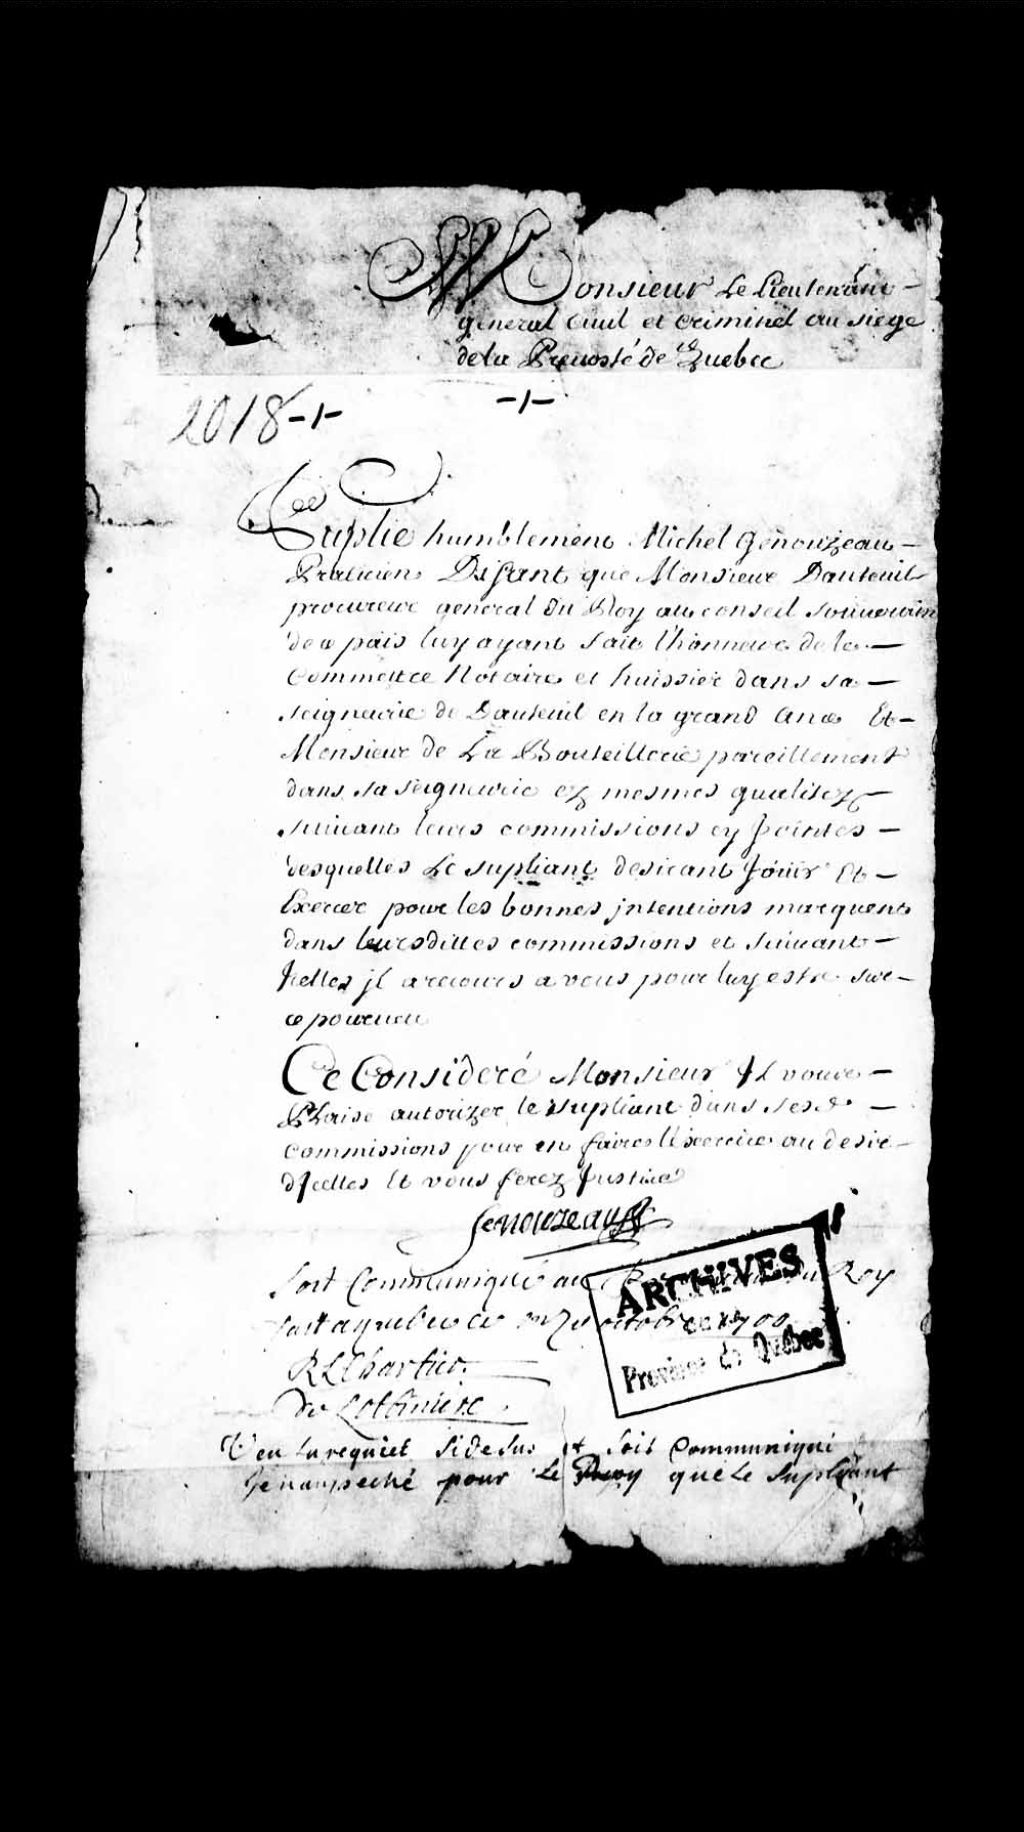 Monsieur Le Lieutenant
general Ciuil et criminel au siege
dela Preuosté de Quebec
2018-/-
-/-
Suplie humblement Michel Genouzeau
Praticien Disant que Monsieur Dauteuil
procureur general du Roy au conseil souuerain
de ce païs luy ayant fait l'honneur de le
Commettre Notaire et huissier dans sa
seigneurie de Dauteuil en la grand ance Et
Monsieur de La Bouteillerie pareillement
dans sa seigneurie ez mesmes qualitez
suiuant leurs commissions cy Jointes
desquelles Le supliant desirant Jouir Et
Exercer pour les bonnes jntentions marquent
dans leursdittes commissions et suiuant
Jcelles jl a recours a vous pour luy estre sur
ce pourueu
Ce Consideré Monsieur Il vous
Plaise autorizer le supliant dans ses d.
commissions pour en faire l'exercice au desir
dJcelles Et vous ferez Justice
Genouzeau
Soit Communiqué au du Roy
fait a quebec ce octobre 1700
RLChartier
De Lotbiniere
Veu la requiet si desus et soit Communiqué
Je nanpeché pour Le Roy que Le Supliant
ARCHIVES
de la
Province de Québec